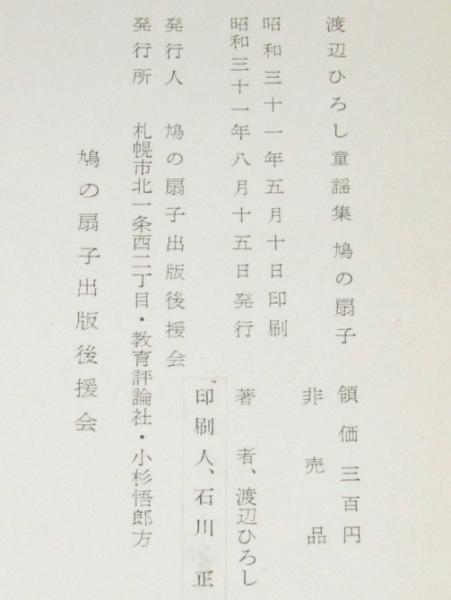 渡辺ひろし童謡集 鳩の扇子
領価三百円
非売品
昭和三十一年五月十日印刷
昭和三十一年八月十五日発行
著者、渡辺ひろし
印刷人、石川 正
発行人 鳩の扇子出版後援会
発行所 札幌市北一条西二丁目・教育評論社・小杉悟郎方
鳩の扇子出版後援会